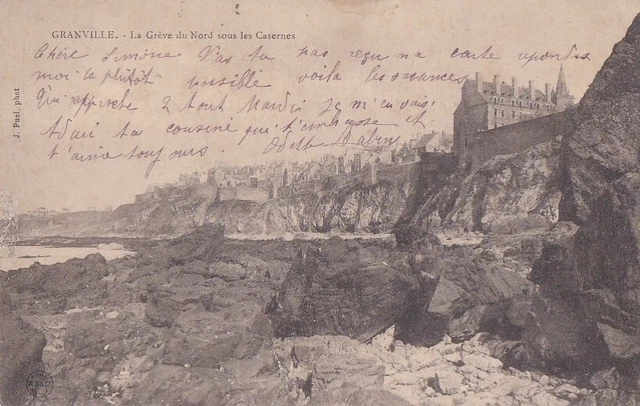 GRANVILLE. - La Grève du Nord sous les Casernes
Chère Simone Pas tu pas reçu ma carte repondez
moi le plutôt possible voilà les vacances
Qui approche 2 tout Mardi je m'en vais.
ta cousine qui t'embrasse et
t'aime toujours. Odette
J. Puel, phot